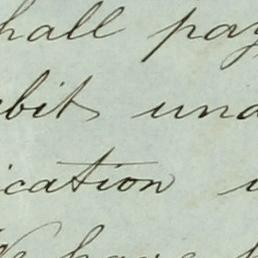 hall pay
bit und
ication
We have